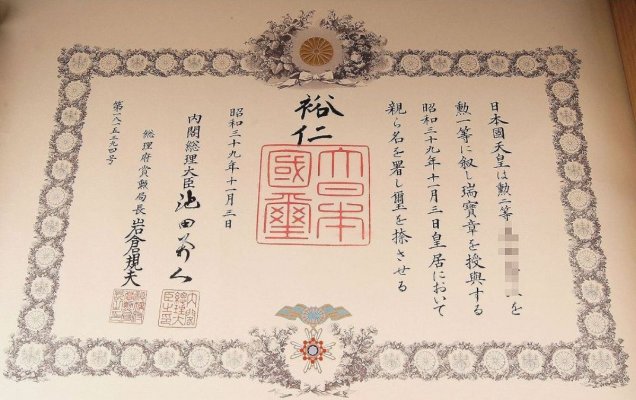 日本國天皇は勲二等
を
勲一等に叙し瑞寶章を授與する
昭和三十九年十一月三日皇居において
親ら名を署し璽を捺させる
裕仁
大日本國璽
昭和三十九年十一月三日
内閣総理大臣 池田勇人
内閣総理大臣之印
総理府賞勲局長 岩倉規夫
第一八一五三九四号